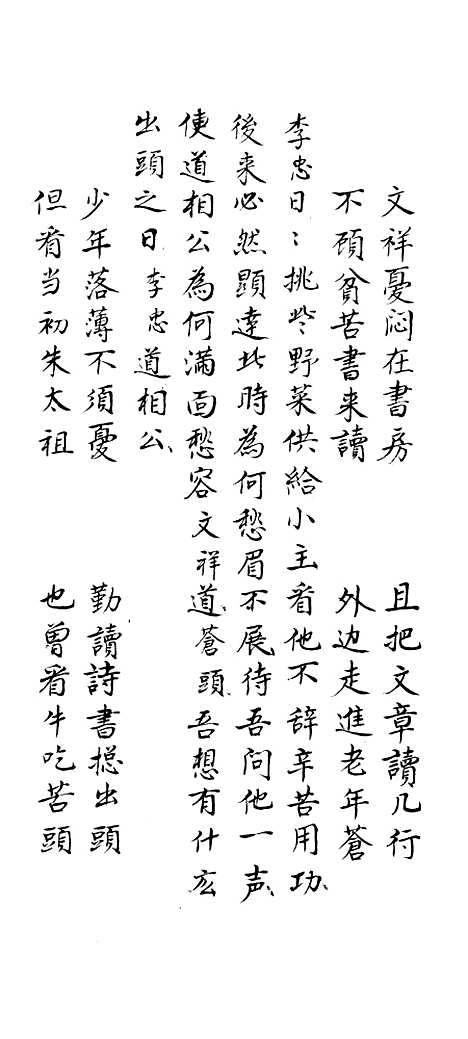 文祥憂悶在書房　且把文章讀几行
不頋貧苦書来讀　外边走進老年蒼
李忠日〻挑些野菜供給小主看他不辞辛苦用功、
後来必然顯達此時為何愁眉不展待吾問他一声、
使道相公為何满面愁容文祥道、蒼頭、吾想有什么
出頭之日李忠道相公、
少年落薄不須憂　勤讀詩書搃出頭
但看当初朱太祖　也曽看牛吃苦頭